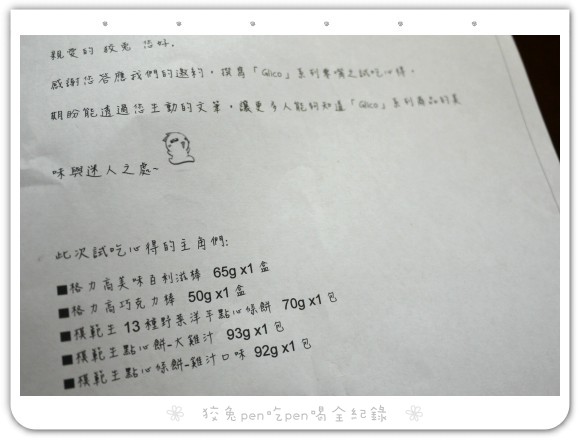 親愛的 狡兔 您好,
感謝您答應我們的邀約,撰寫「Qlico」系列專嘴之試吃心得。
期盼能透過您生動的文筆,讓更多人能夠知道「Qlico」系列商品的美
味與迷人之處~
此次試吃心得的主角們:
■格力高美味百利滋棒 65g x1 盒
■格力高巧克力棒 50g x1 盒
■模範生 13 種野菜洋芋點心條餅 70g x1 包
■模範生點心餅-大雞汁 93g x1 包
■模範生點心條餅-雞汁口味 92g x1 包
狡兔pen吃pen喝全紀錄